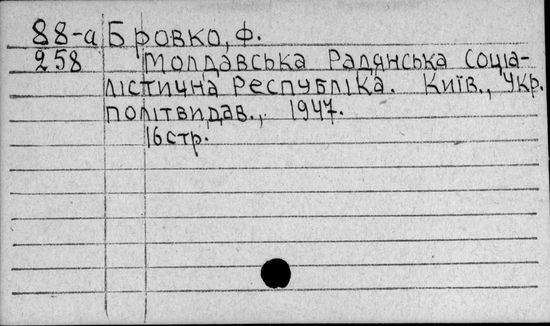 88-а Бровко, Ф.
258 Молдавська Радянська Соціа-
лістична Республіка. Київ., Укр.
політвидав., 1947.
16 стр.